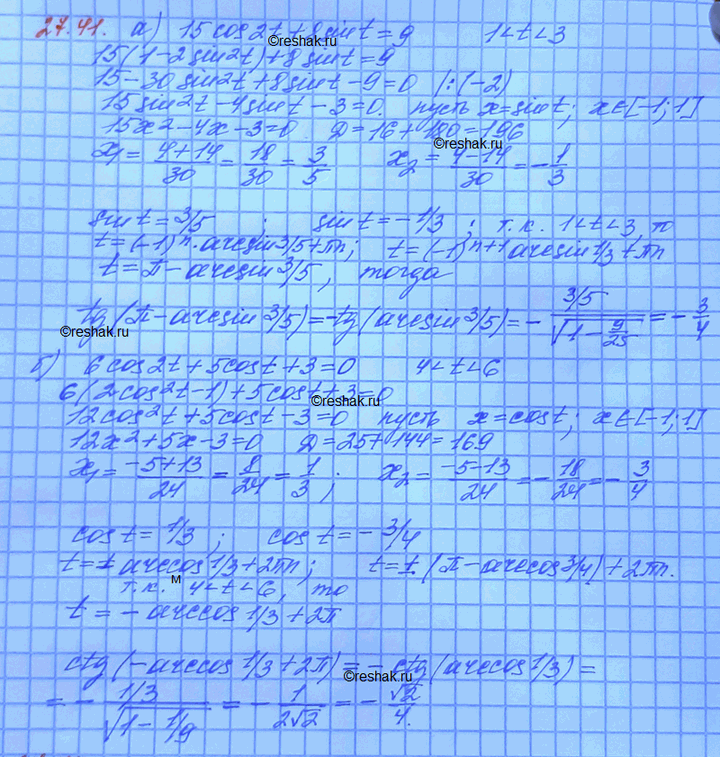 27.41. а) 15 cos 2t + 8 sin t = 9 1 < t < 3
©reshak.ru
15(1 - 2 sin²t) + 8 sin t = 9
15 - 30 sin²t + 8 sin t - 9 = 0 | : (-2)
15 sin²t - 4 sin t - 3 = 0. пусть x = sin t; x ∈ [-1; 1]
15x² - 4x - 3 = 0 D = 16 + 180 = 196
©reshak.ru
x₁ = (4+14)/30 = 18/30 = 3/5 x₂ = (4-14)/30 = -1/3
sin t = 3/5 ; sin t = -1/3 ; т.к. 1 < t < 3, то
t = (-1)ⁿ · arcsin 3/5 + πn; t = (-1)ⁿ⁺¹ arcsin 1/3 + πn
t = π - arcsin 3/5, тогда
tg(π - arcsin 3/5) = -tg(arcsin 3/5) = - (3/5)/√(1 - 9/25) = - 3/4
©reshak.ru
б) 6 cos 2t + 5 cos t + 3 = 0 4 < t < 6
6(2 cos²t - 1) + 5 cos t + 3 = 0
©reshak.ru
12 cos²t + 5 cos t - 3 = 0 пусть x = cos t; x ∈ [-1; 1]
12x² + 5x - 3 = 0 D = 25 + 144 = 169
x₁ = (-5+13)/24 = 8/24 = 1/3 ; x₂ = (-5-13)/24 = -18/24 = -3/4
cos t = 1/3 ; cos t = -3/4
t = ± arccos 1/3 + 2πn; t = ± (π - arccos 3/4) + 2πn.
м
т.к. 4 < t < 6, то
t = - arccos 1/3 + 2π
ctg(-arccos 1/3 + 2π) = - ctg(arccos 1/3) =
©reshak.ru
= - (1/3)/√(1 - 1/9) = - 1/(2√2) = - √2/4.